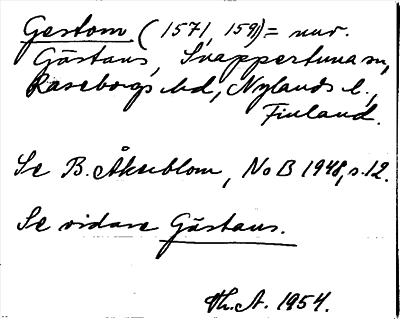 Gestom (1571, 159)= nuv.
Gästans, Snappertuna sn,
Raseborgs hd, Nylands l.,
Finland.
Se B. Åkerblom, NoB 1948, s. 12.
Se vidare Gästans.
Th. A. 1954.